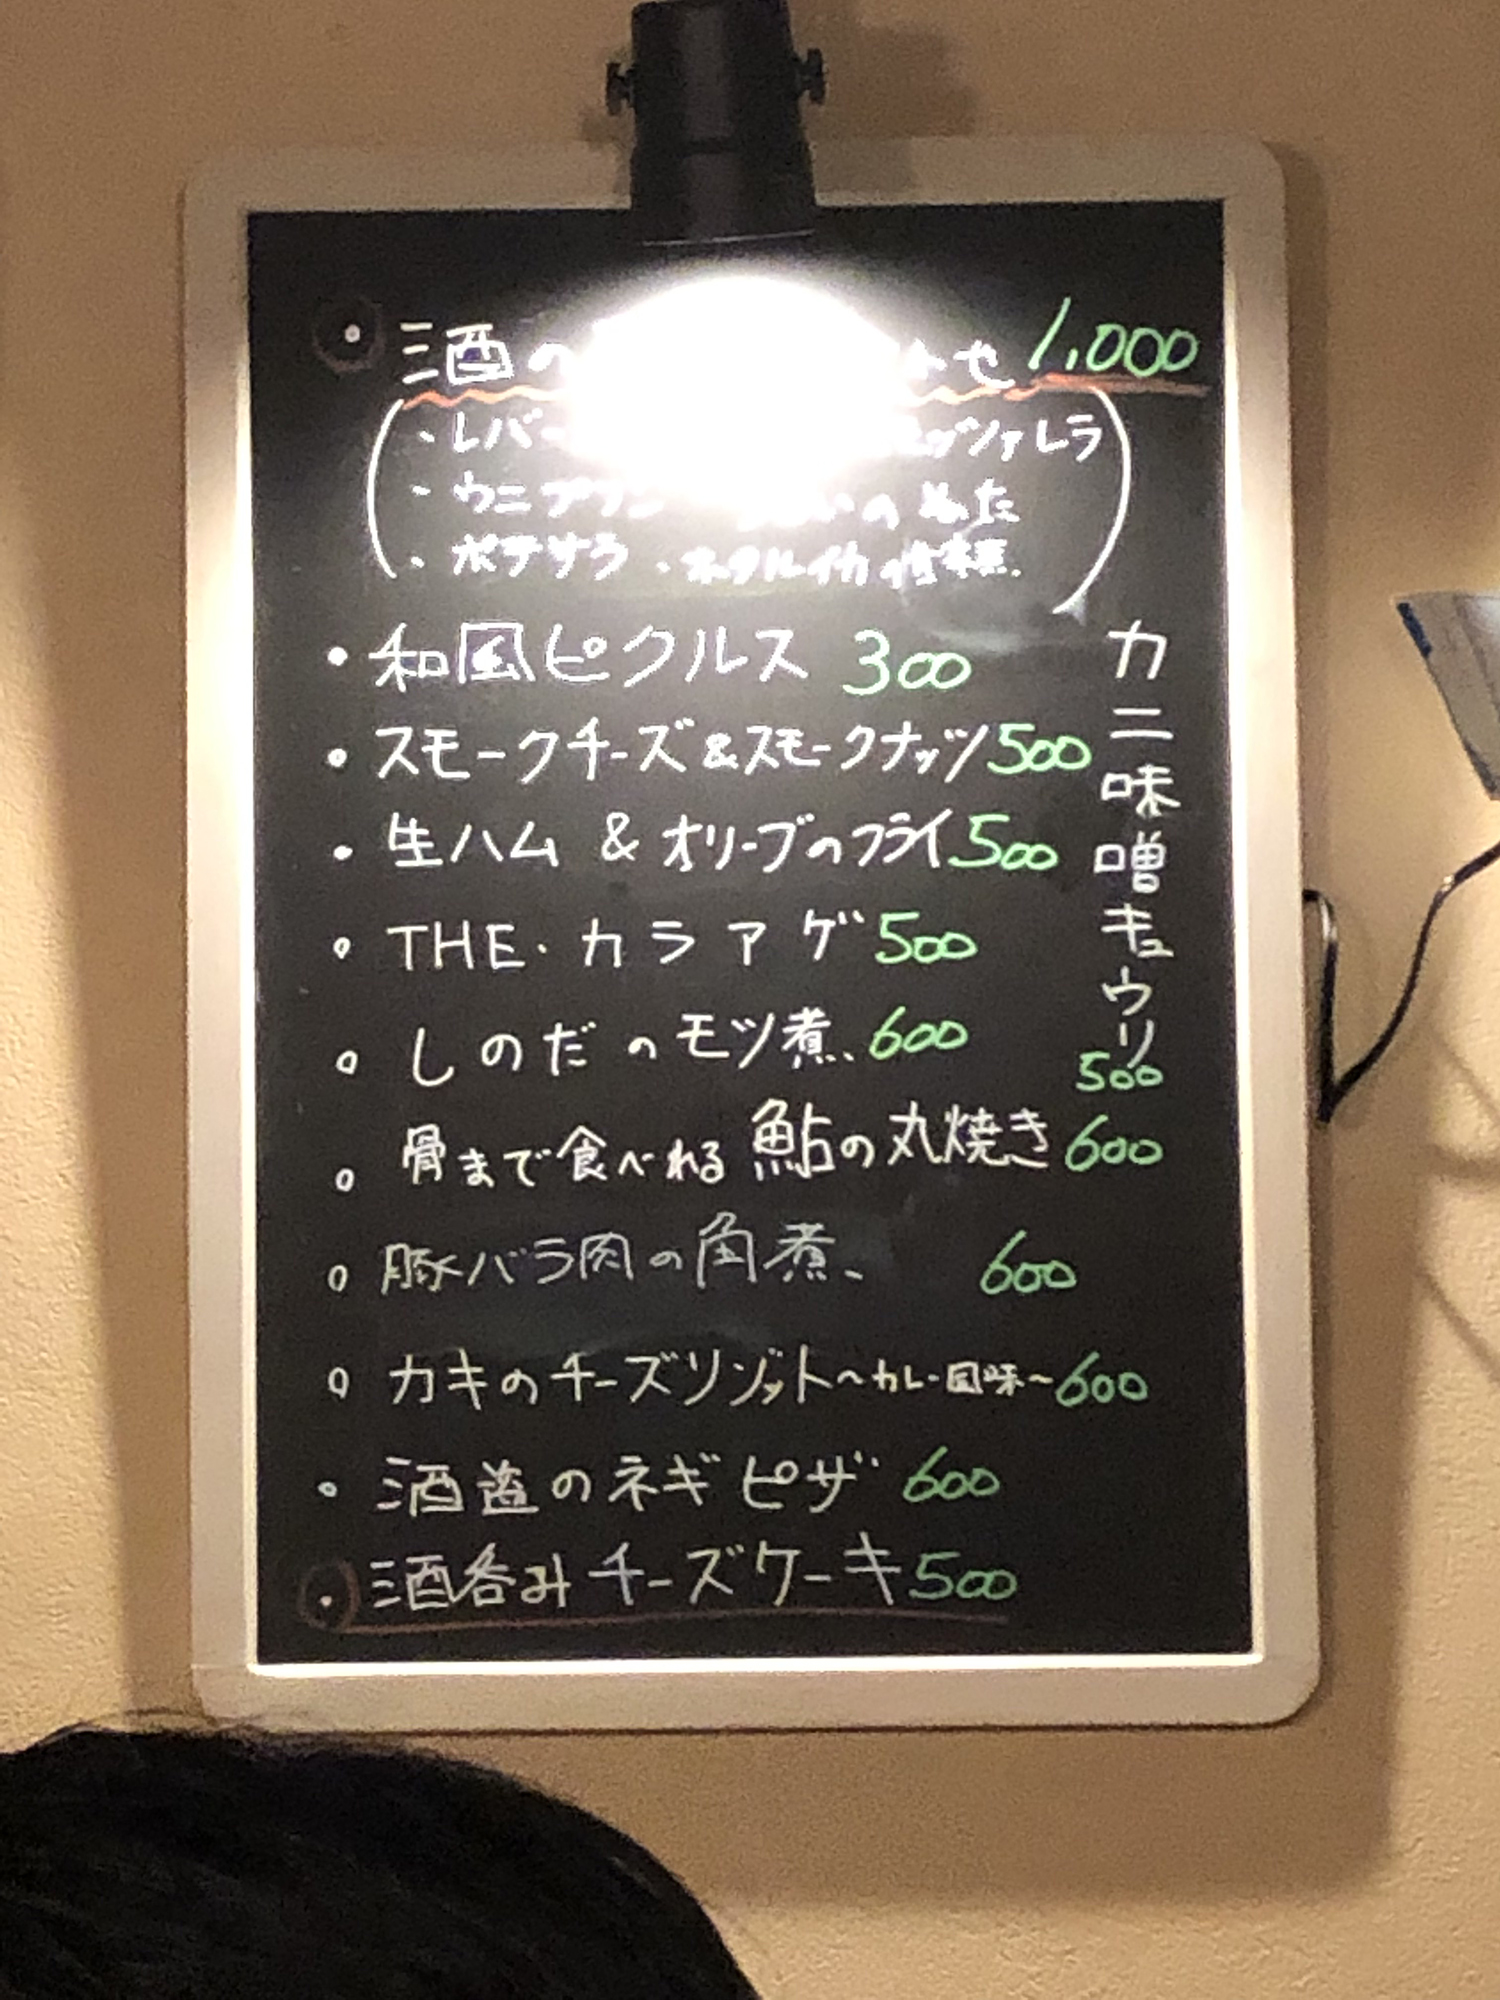 酒の
せ 1,000
・レバー
ッツァレラ
・ウニプリン
のぬた
・ポテサラ ・ホタルイカの
・和風ピクルス 300
・スモークチーズ&スモークナッツ 500
・生ハム & オリーブのフライ 500
・THE・カラアゲ 500
・しのだのモツ煮 600
・骨まで食べれる 鮎の丸焼き 600
・豚バラ肉の角煮 600
・カキのチーズリゾット〜カレー風味〜 600
・酒盗のネギピザ 600
・酒呑みチーズケーキ 500
カニ味噌キュウリ
500